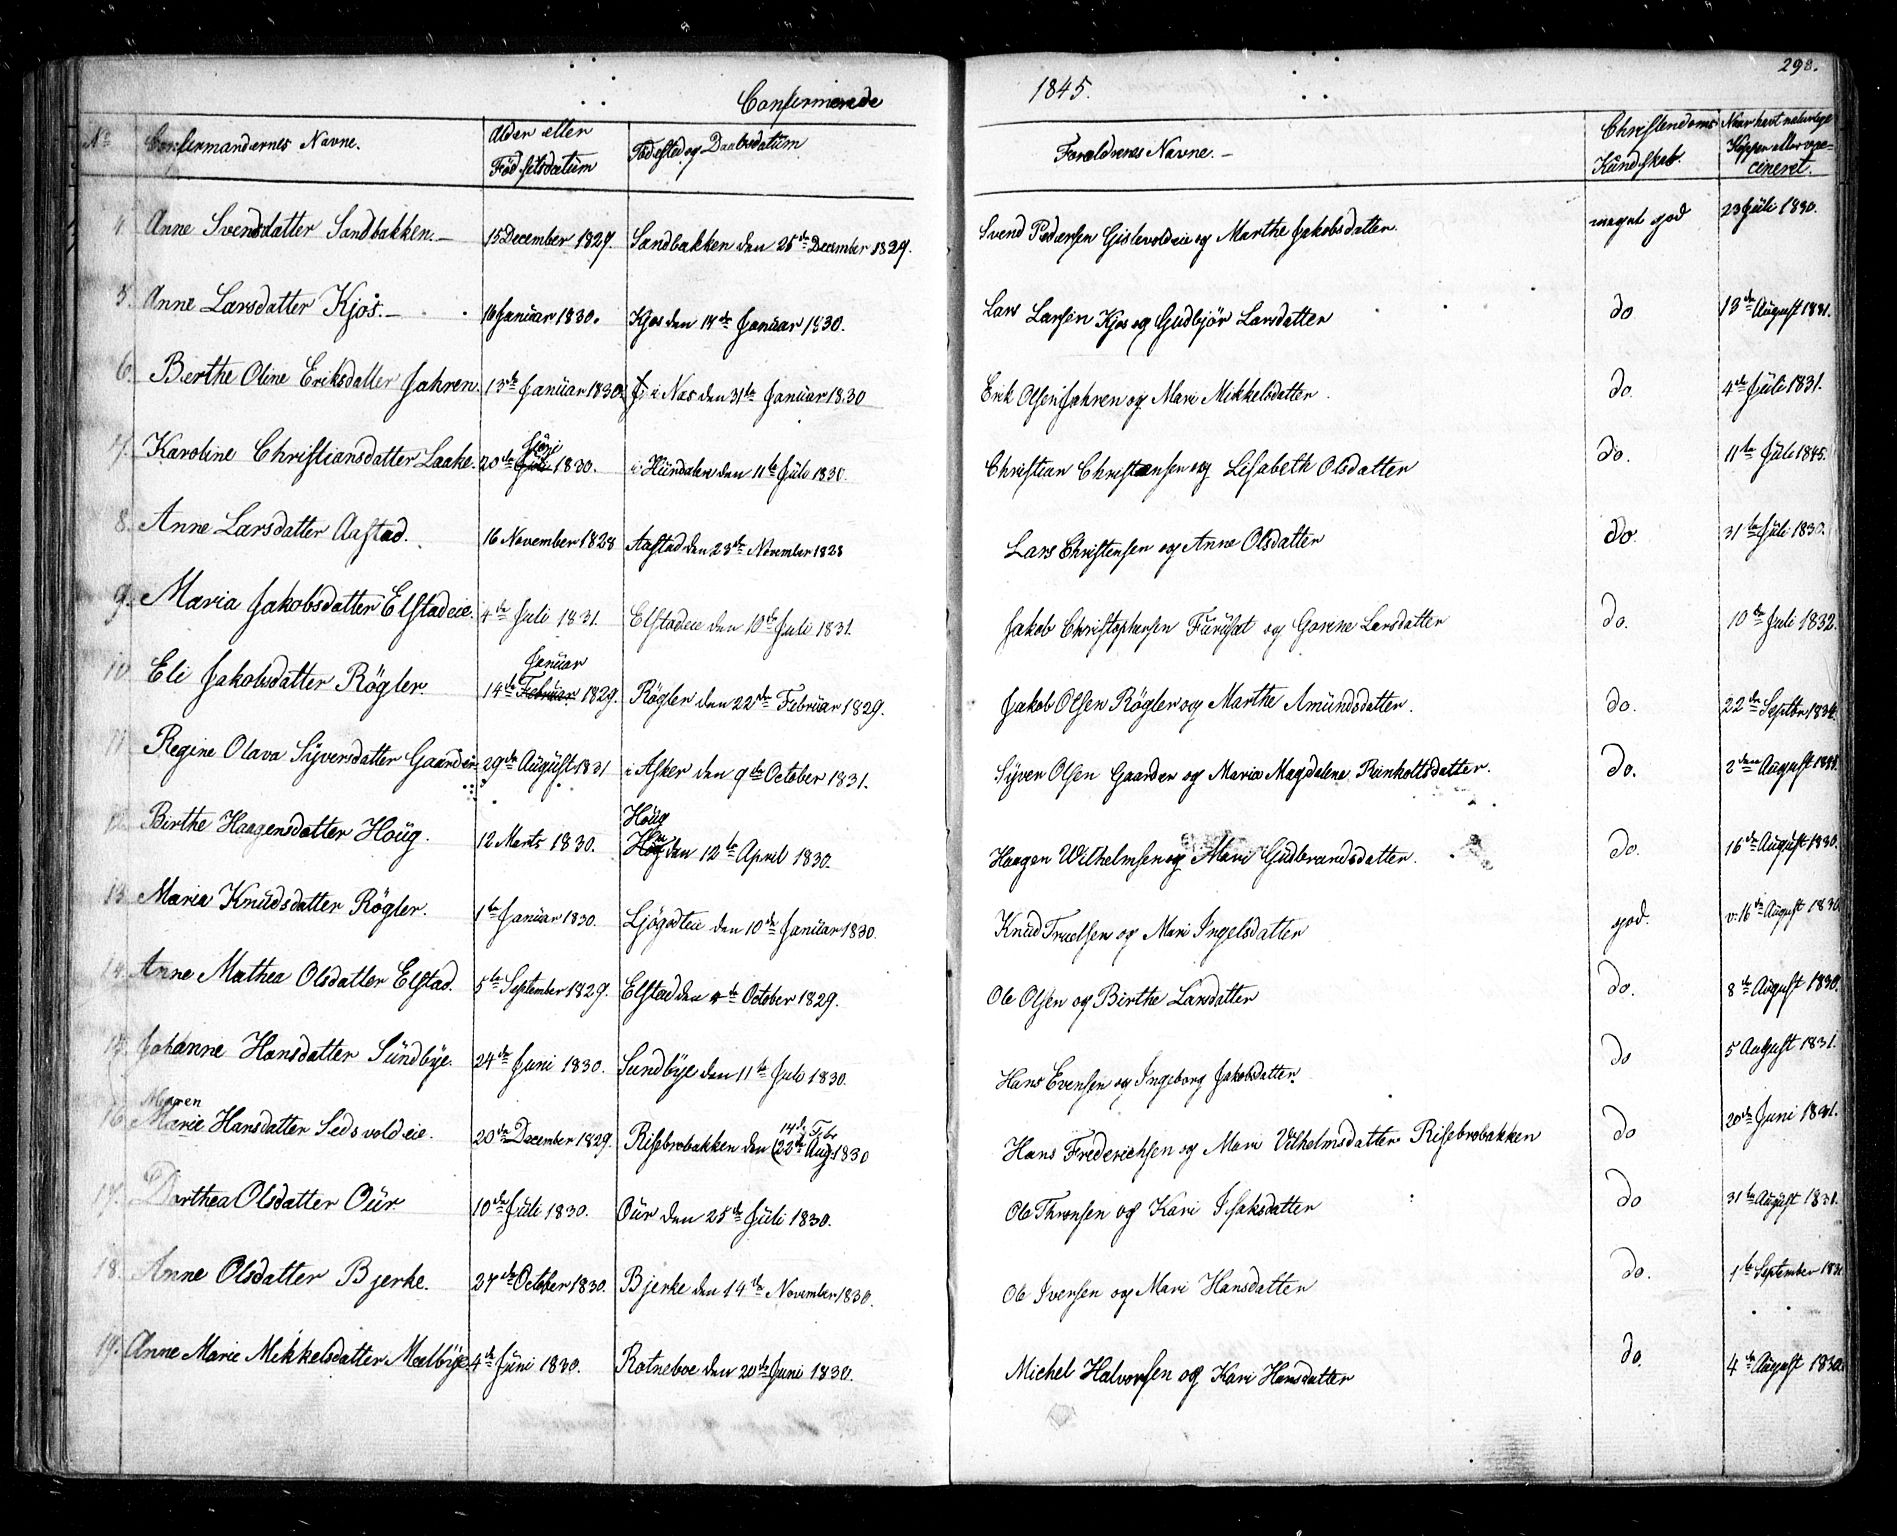 298.
Confirmerede 1845.
No Confirmandernes Navne. Alder eller Födselsdatum Födested og Daabsdatum Forældrenes Navne. Christendoms Kundskab. Naar havt naturlige Kopper eller vaccineret.
4. Anne Svendsdatter Sandbakken. 15 December 1829. Sandbakken den 25de December 1829. Svend Pedersen Gislevoldeie og Marthe Jakobsdatter. meget god 23 Juli 1830.
5. Anne Larsdatter Kjos. 16 Januar 1830. Kjos den 17de Januar 1830. Lars Larsen Kjos og Gudbjör Larsdatter do 13de August 1831.
6. Berthe Oline Eriksdatter Jahren. 13de Januar 1830. J. i Næs den 31te Januar 1830 Erik Olsen Jahren og Mari Mikkelsdatter. do. 4de Juli 1831.
7. Karoline Christiansdatter Laake. 20de Juni 1830. i Hurdalen den 11te Juli 1830. Christian Christensen og Lisabeth Olsdatter do. 11te Juli 1845.
8. Anne Larsdatter Aastad. 16 November 1828 Aastad den 23de November 1828 Lars Christensen og Anne Olsdatter do. 31te Juli 1830.
9. Maria Jakobsdatter Elstadeie. 4de Juli 1831. Elstadeie den 10de Juli 1831. Jakob Christophersen Furuset og Gorine Larsdatter do. 10de Juli 1832.
10. Eli Jakobsdatter Rögler. 14de Februar Januar 1829. Rögler den 22de Februar 1829. Jakob Olsen Rögler og Marthe Amundsdatter. do. 22de Septbr 1834.
11. Regine Olava Syversdatter Gaarder. 29de August 1831 i Asker den 9de October 1831. Syver Olsen Gaarder og Maria Magdalene Reinholtsdatter. do. 2den August
12. Birthe Haagensdatter Houg. 12 Marts 1830. Houg den 12te April 1830. Haagen Wilhelmsen og Mari Gudbrandsdatter. do. 16de August 1830.
13. Maria Knudsdatter Rögler. 1te Januar 1830. Ljögodteie den 10de Januar 1830. Knud Truelsen og Mari Ingelsdatter god. v. 16de August 1830
14. Anne Mathea Olsdatter Elstad. 5te September 1829. Elstad den 4de October 1829. Ole Olsen og Birthe Larsdatter do. 8de August 1830.
15. Johanne Hansdatter Sundbye. 24de Juni 1830. Sundbye den 11te Juli 1830. Hans Evensen og Ingeborg Jakobsdatter. do 5 August 1831.
16. Maren Marie Hansdatter Sedsvoldeie. 20de December 1829. Risebrobakken den 14de Febr (22de Aug) 1830 Hans Frederichsen og Mari Vilhelmsdatter Risebrobakken do 20de Juni 1831.
17. Dorthea Olsdatter Our 10de Juli 1830. Our den 25de Juli 1830. Ole Thronsen og Kari Isaksdatter do 31te August 1831.
18. Anne Olsdatter Bjerke. 27de October 1830. Bjerke den 14de November 1830. Ole Iversen og Mari Hansdatter do. 1te September
19. Anne Marie Mikkelsdatter Mælbye. 4de Juni 1830. Rotneboe den 20de Juni 1830. Michel Halvorsen og Kari Hansdatter do. 4de August 1830.